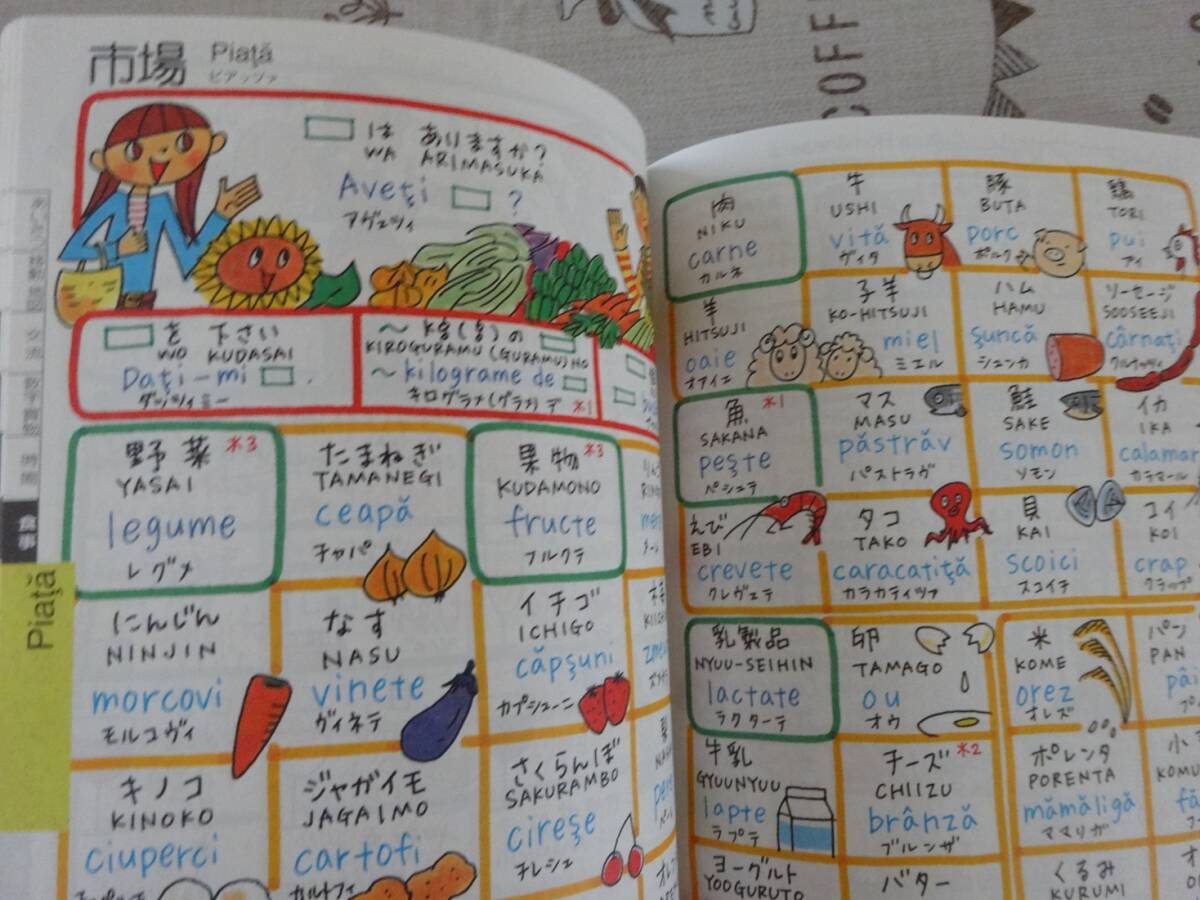 市場 Piaţă
ピアッツァ
は ありますか?
WA ARIMASUKA
Aveţi ?
アヴェツィ
を 下さい
WO KUDASAI
Daţi-mi .
ダッツィミー
~kg(g)の
KIROGURAMU (GURAMU) NO
~kilograme de
キログラメ(グラメ)デ *1
野菜 *3
YASAI
legume
レグメ
たまねぎ
TAMANEGI
ceapă
チャパ
果物 *3
KUDAMONO
fructe
フルクテ
にんじん
NINJIN
morcovi
モルコヴィ
なす
NASU
vinete
ヴィネテ
イチゴ
ICHIGO
căpşuni
カプシューニ
キノコ
KINOKO
ciuperci
ジャガイモ
JAGAIMO
cartofi
カルトフィ
さくらんぼ
SAKURAMBO
cireşe
チレシェ
食事
Piaţă
肉
NIKU
carne
カルネ
牛
USHI
vită
ヴィタ
豚
BUTA
porc
ポルク
鶏
TORI
pui
プイ
羊
HITSUJI
oaie
オアイエ
子羊
KO-HITSUJI
miel
ミエル
ハム
HAMU
şuncă
シュンカ
ソーセージ
SOOSEEJI
cârnaţi
クルナッツィ
魚 *1
SAKANA
peşte
ペシュテ
マス
MASU
păstrăv
パストラヴ
鮭
SAKE
somon
ソモン
イカ
IKA
calamar
カラマール
えび
EBI
crevete
クレヴェテ
タコ
TAKO
caracatiţă
カラカティツァ
貝
KAI
scoici
スコイチ
コイ
KOI
crap
クラップ
乳製品
NYUU-SEIHIN
lactate
ラクターテ
卵
TAMAGO
ou
オウ
米
KOME
orez
オレズ
パン
PAN
牛乳
GYUUNYUU
lapte
ラプテ
チーズ *2
CHIIZU
brânză
ブルンザ
ポレンタ
PORENTA
mămăligă
ママリガ
ヨーグルト
YOOGURUTO
バター
くるみ
KURUMI
COFF